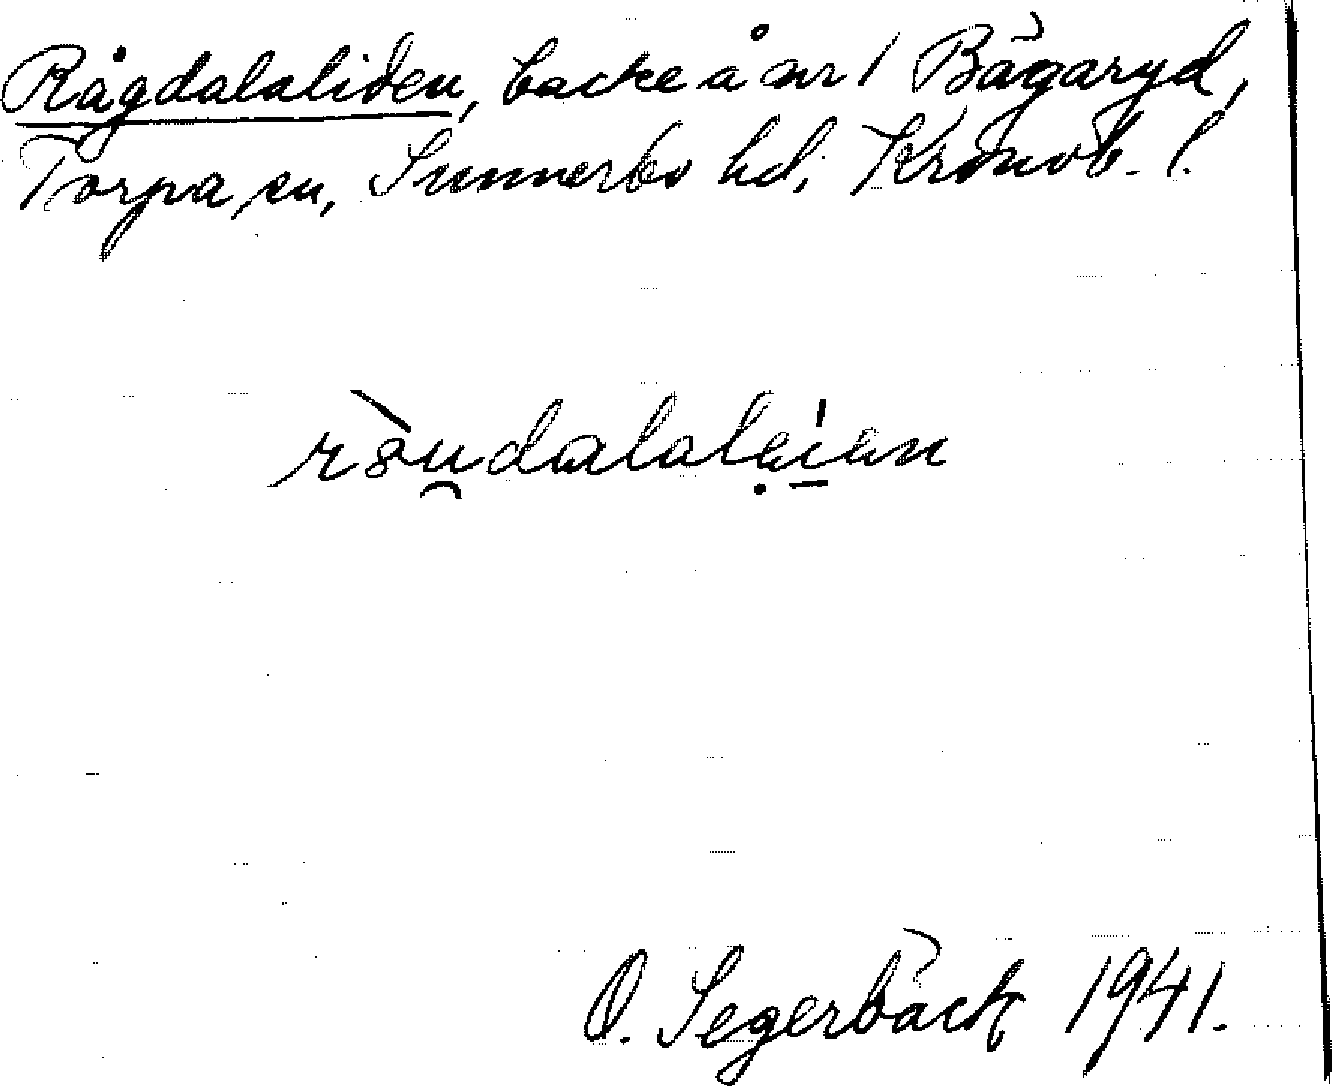 Rågdalaliden, backe å nr 1 Bägaryd,
Torpa sn, Sunnerbo hd, Kronob. l.
O. Segerbäck 1941.